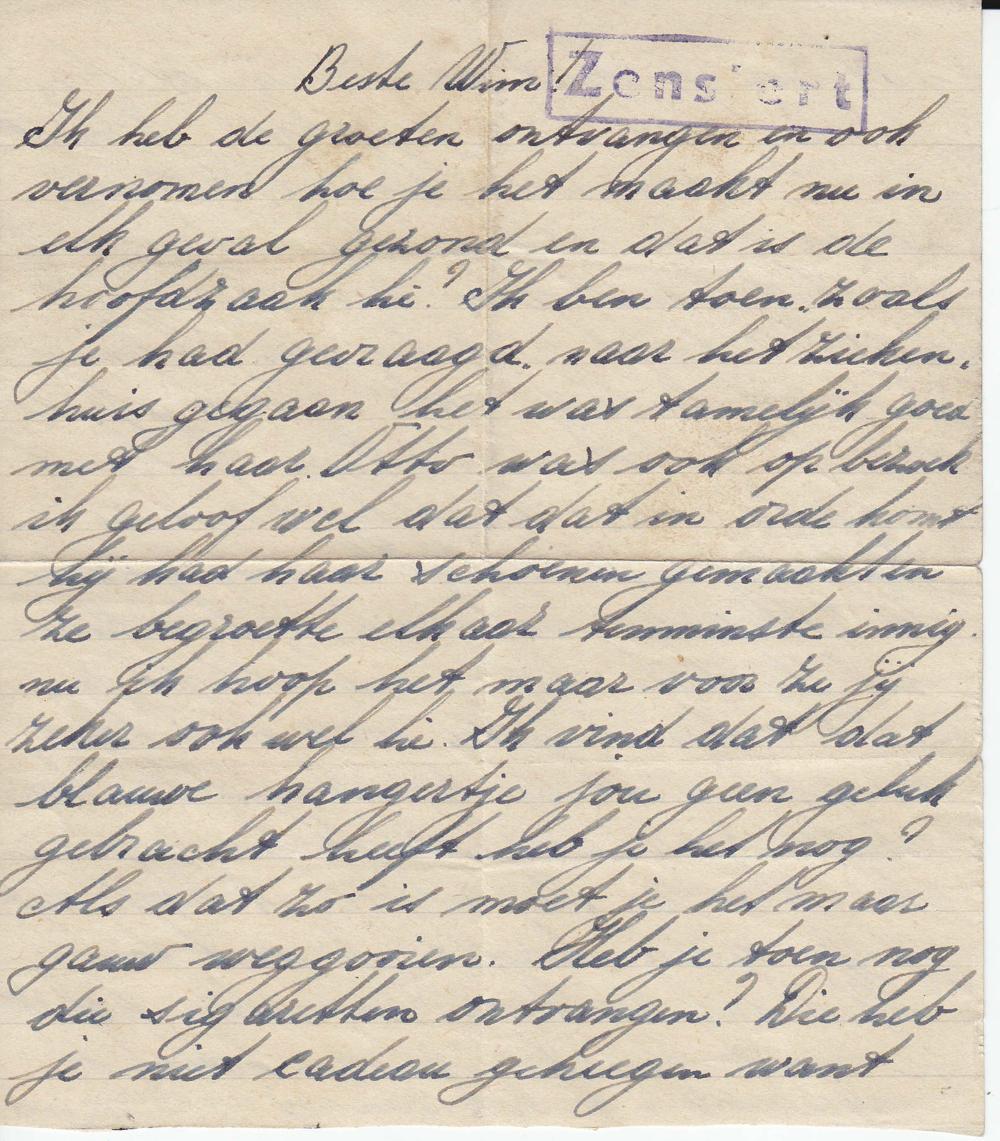 Beste Wim!
Zensiert
Ik heb de groeten ontvangen en ook
vernomen hoe je het maakt nu in
elk geval gezond en dat is de
hoofdzaak hè? Ik ben toen „zoals
je had gevraagd„ naar het zieken-
huis gegaan het was tamelijk goed
met haar. Otto was ook op bezoek
ik geloof wel dat dat in orde komt
hij had haar schoenen gemaakt en
ze begroette elkaar tenminste innig.
nu ik hoop het maar voor ze jij
zeker ook wel hè. Ik vind dat dat
blauwe hangertje jou geen geluk
gebracht heeft heb je het nog?
Als dat zo is moet je het maar
gauw weggooien. Heb je toen nog
die sigaretten ontvangen? Die heb
je niet cadeau gekregen want